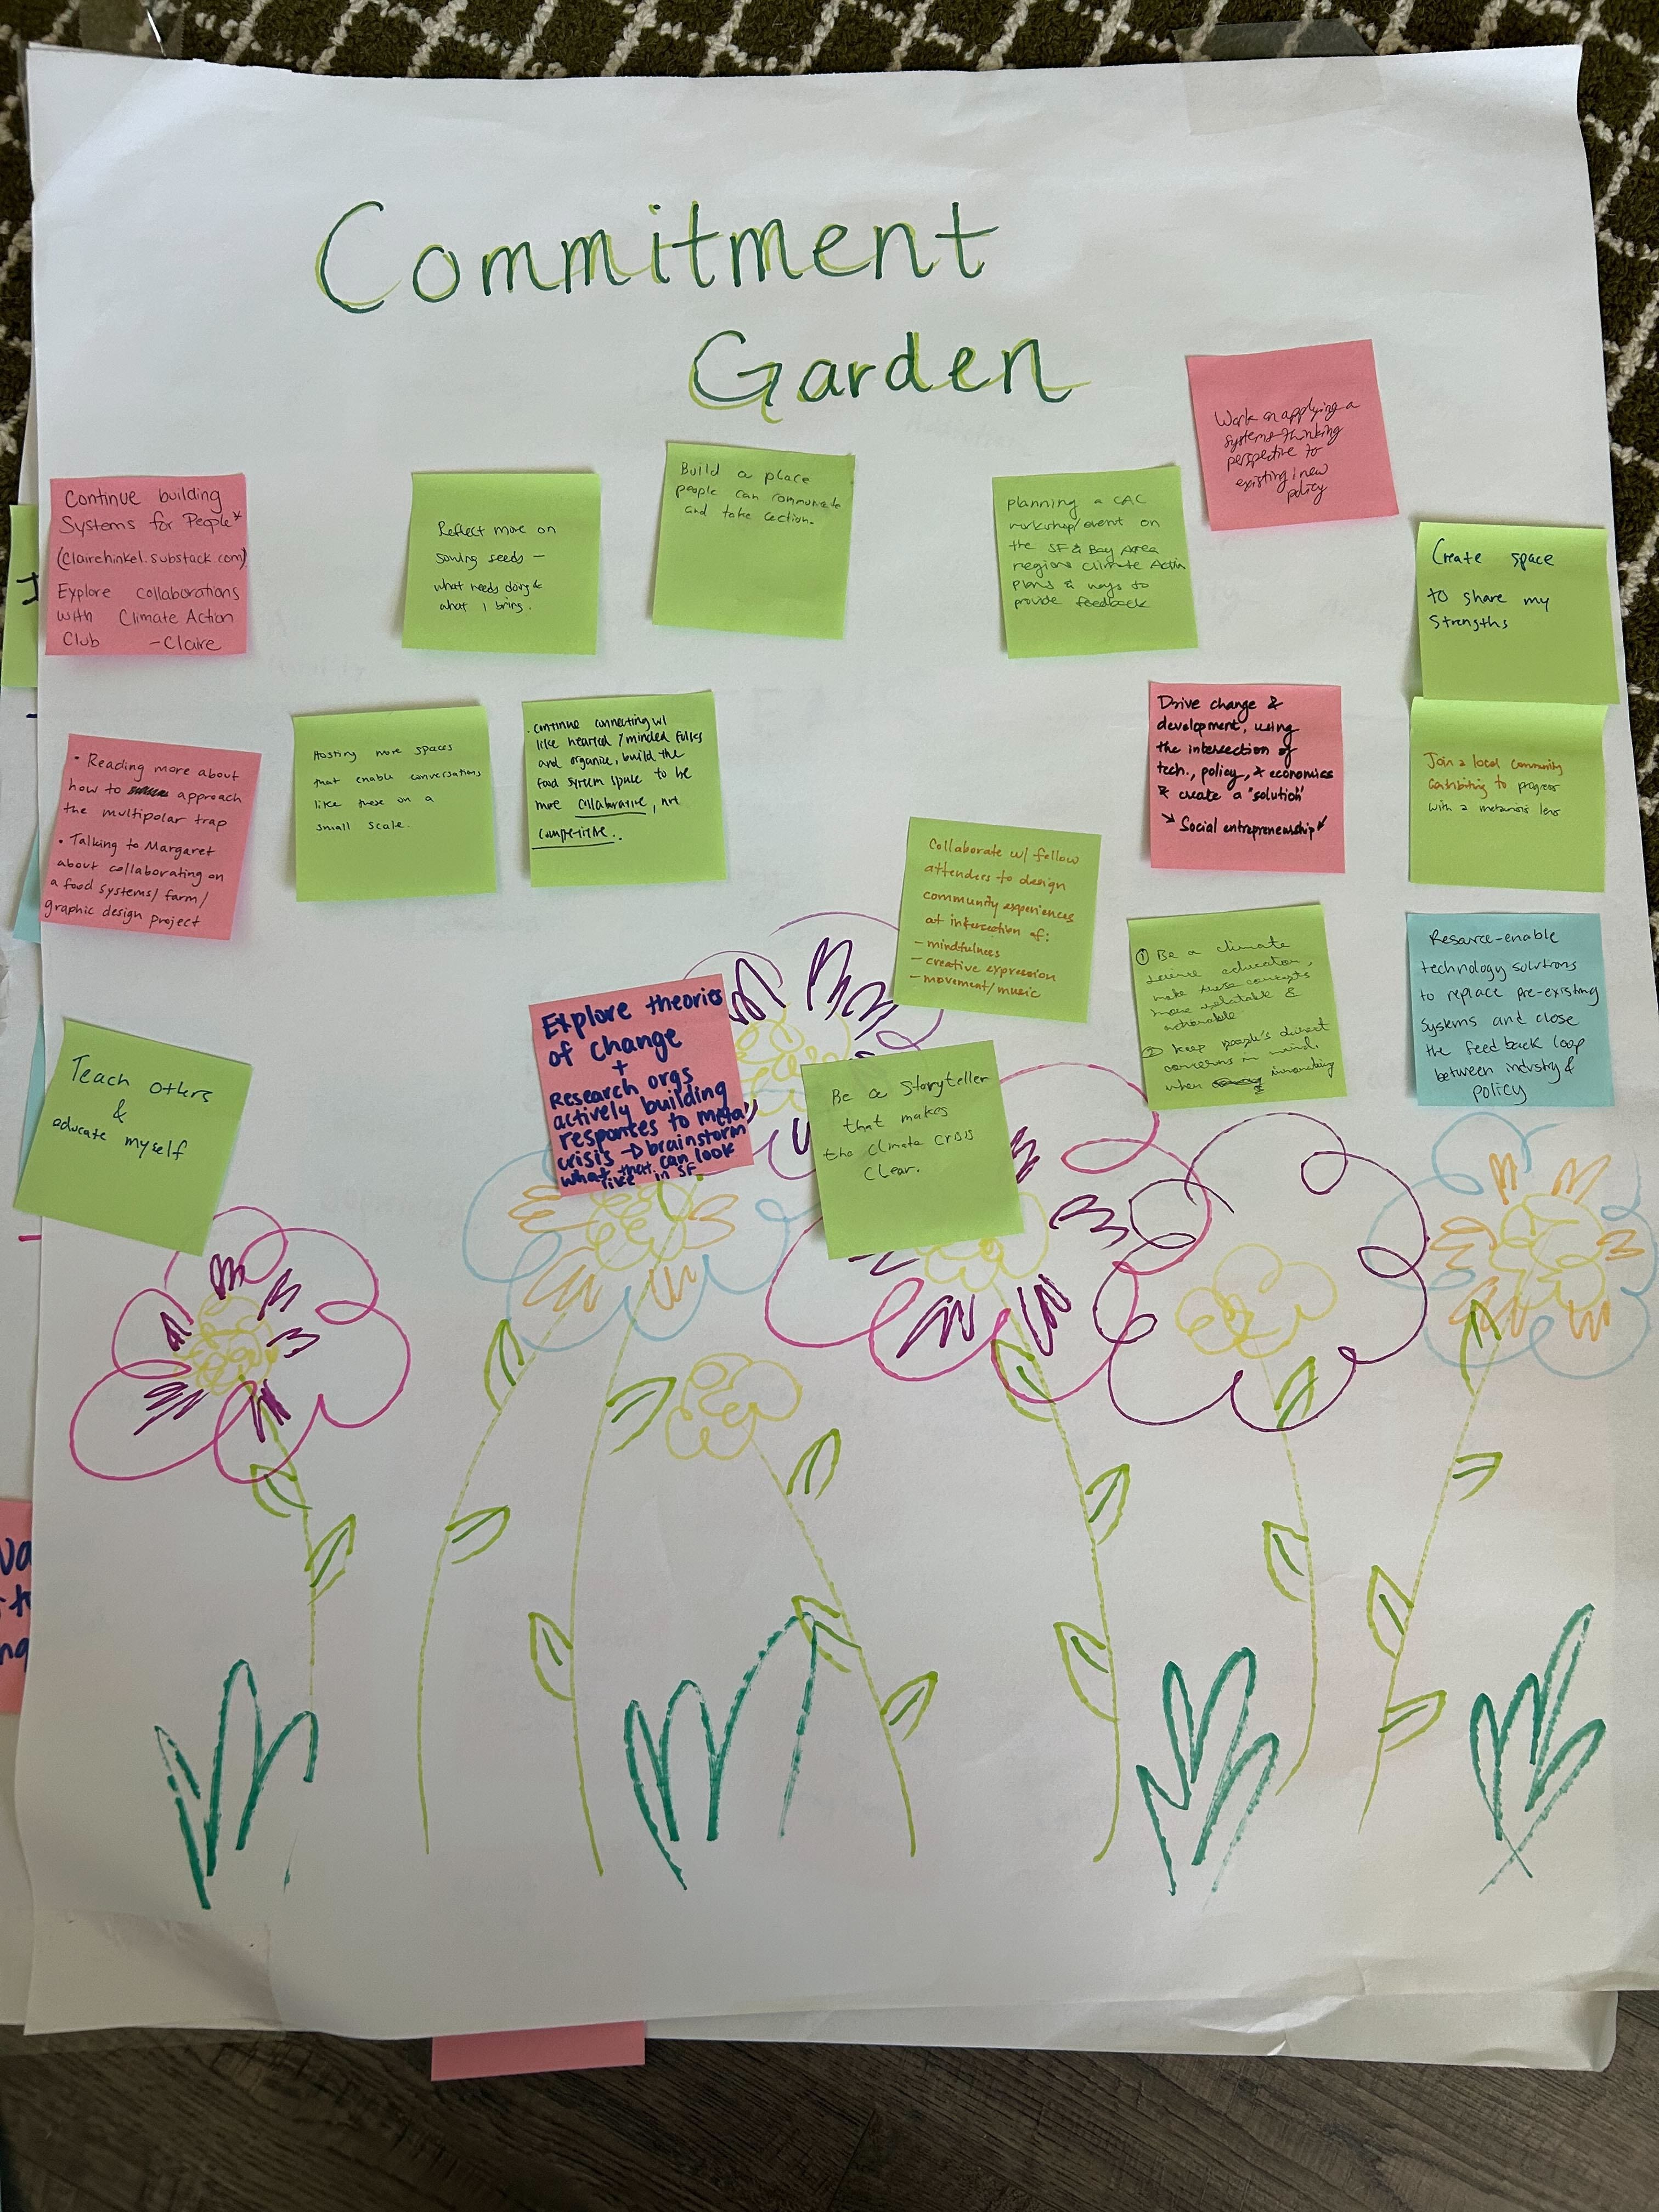 Commitment
Garden
Work on applying a
systems-thinking
perspective to
existing/new
policy
Continue building
Systems for People*
(Clairehinkel.substack.com)
Explore collaborations
with Climate Action
Club -Claire
Reflect more on
sowing seeds —
what needs doing &
what I bring.
Build a place
people can communicate
and take action.
planning a CAC
workshop/event on
the SF & Bay Area
regions Climate Action
plans & ways to
provide feedback
Create space
to share my
Strengths
• Reading more about
how to approach
the multipolar trap
• Talking to Margaret
about collaborating on
a food systems/farm/
graphic design project
Hosting more spaces
that enable conversations
like these on a
small scale.
• Continue connecting w/
like hearted/minded folks
and organize, build the
food system space to be
more collaborative, not
competitive..
Drive change &
development, using
the intersection of
tech., policy, & economics
& create a "solution"
Social entrepreneurship
Join a local community
contributing to progress
with a metacrisis lens
Collaborate w/ fellow
attenders to design
community experiences
at intersection of:
- mindfulness
- creative expression
- movement/music
① Be a climate
science education,
make these concepts
more relatable &
actionable
② Keep people's
concerns in mind,
when innovating
Resource-enable
technology solutions
to replace pre-existing
systems and close
the feedback loop
between industry &
policy
Explore theories
of change
+
Research orgs
actively building
responses to meta
crisis → brainstorm
what that can look
like in SF
Be a Storyteller
that makes
the climate crisis
clear.
Teach others
&
educate myself